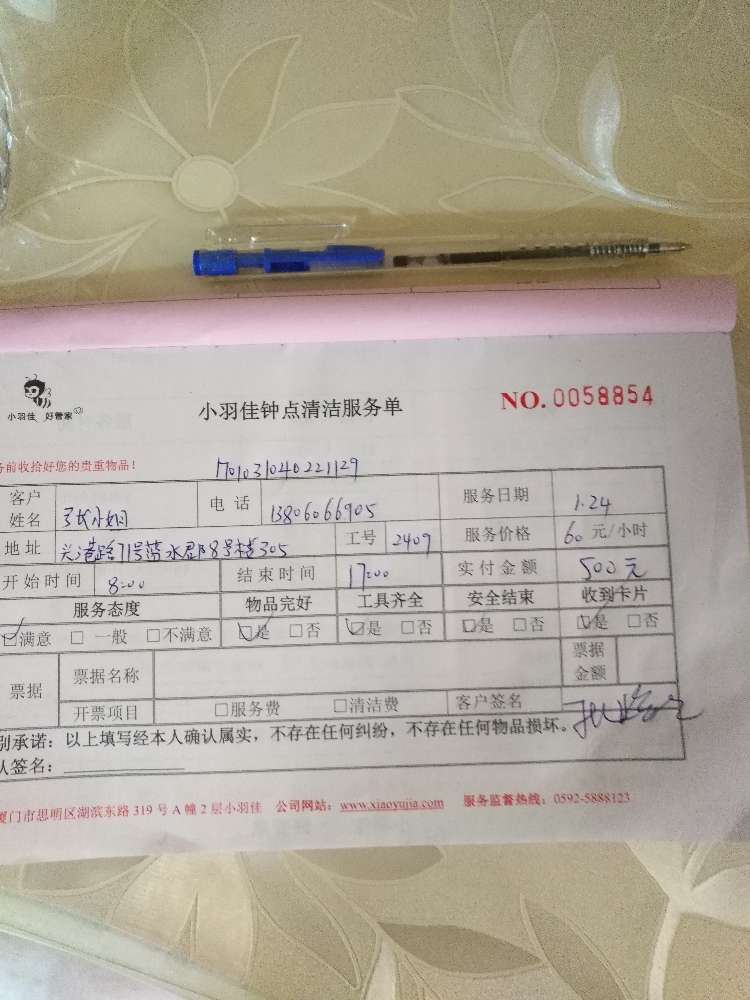 小羽佳 好管家
小羽佳钟点清洁服务单
NO. 0058854
务前收拾好您的贵重物品！
1701031040221129
客户姓名 张小姐 电话 13806066905 服务日期 1.24
地址 兴港路71号蓝水郡8号楼305 工号 2409 服务价格 60 元/小时
开始时间 8:00 结束时间 17:00 实付金额 500元
服务态度 物品完好 工具齐全 安全结束 收到卡片
☑满意 □一般 □不满意 ☑是 □否 ☑是 □否 ☑是 □否 ☑是 □否
票据 票据名称 票据金额
开票项目 □服务费 □清洁费 客户签名
别承诺：以上填写经本人确认属实，不存在任何纠纷，不存在任何物品损坏。
人签名：
厦门市思明区湖滨东路 319 号 A 幢 2 层小羽佳 公司网站：www.xiaoyujia.com 服务监督热线：0592-5888123